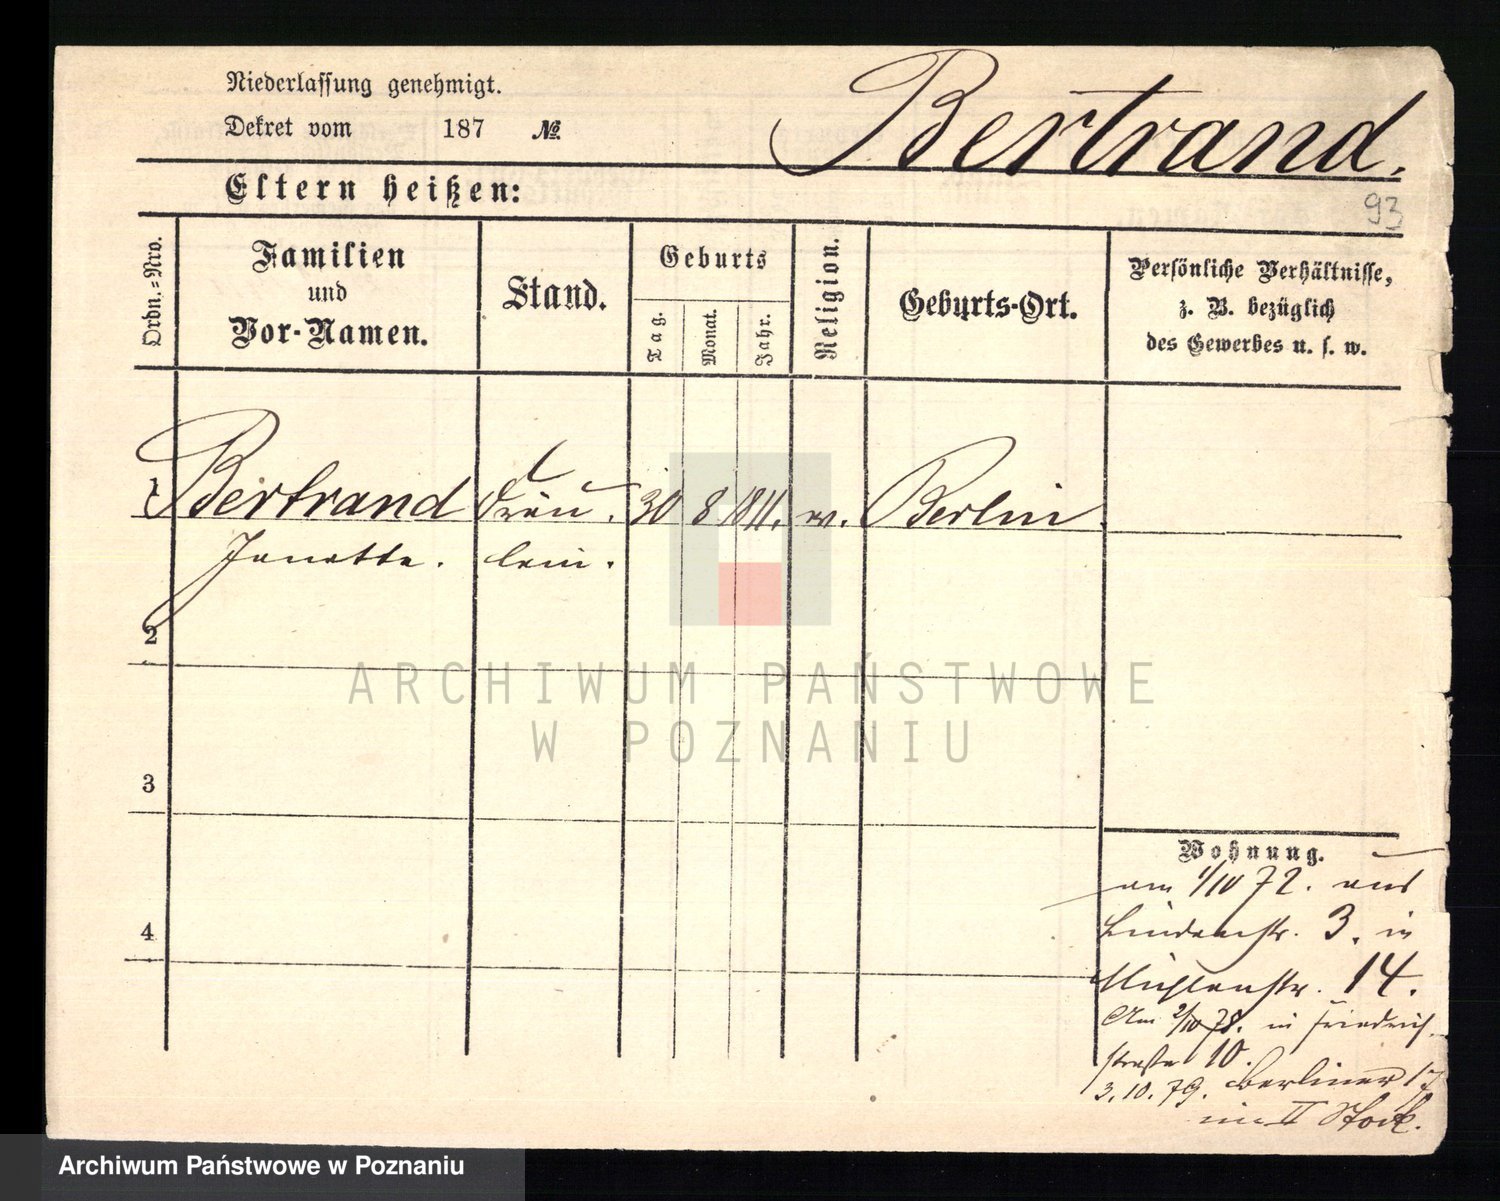 Niederlassung genehmigt.
Dekret vom 187 №
Bertrand.
Eltern heißen:
93
Ordn.=Nro.
Familien
und
Vor-Namen.
Stand.
Geburts
Tag.
Monat.
Jahr.
Religion.
Geburts-Ort.
Persönliche Verhältnisse,
z. B. bezüglich
des Gewerbes u. s. w.
1 Bertrand Fräu. 30 8 1811. ev. Berlin.
Janette. lein.
2
3
4
Wohnung.
am 1/10 72. aus
Lindenstr. 3. in
Mühlenstr. 14.
Am 2/10 78. in Friedrich-
straße 10.
3.10.79. Berliner 17
im II Stock.
ARCHIWUM PAŃSTWOWE
W POZNANIU
Archiwum Państwowe w Poznaniu